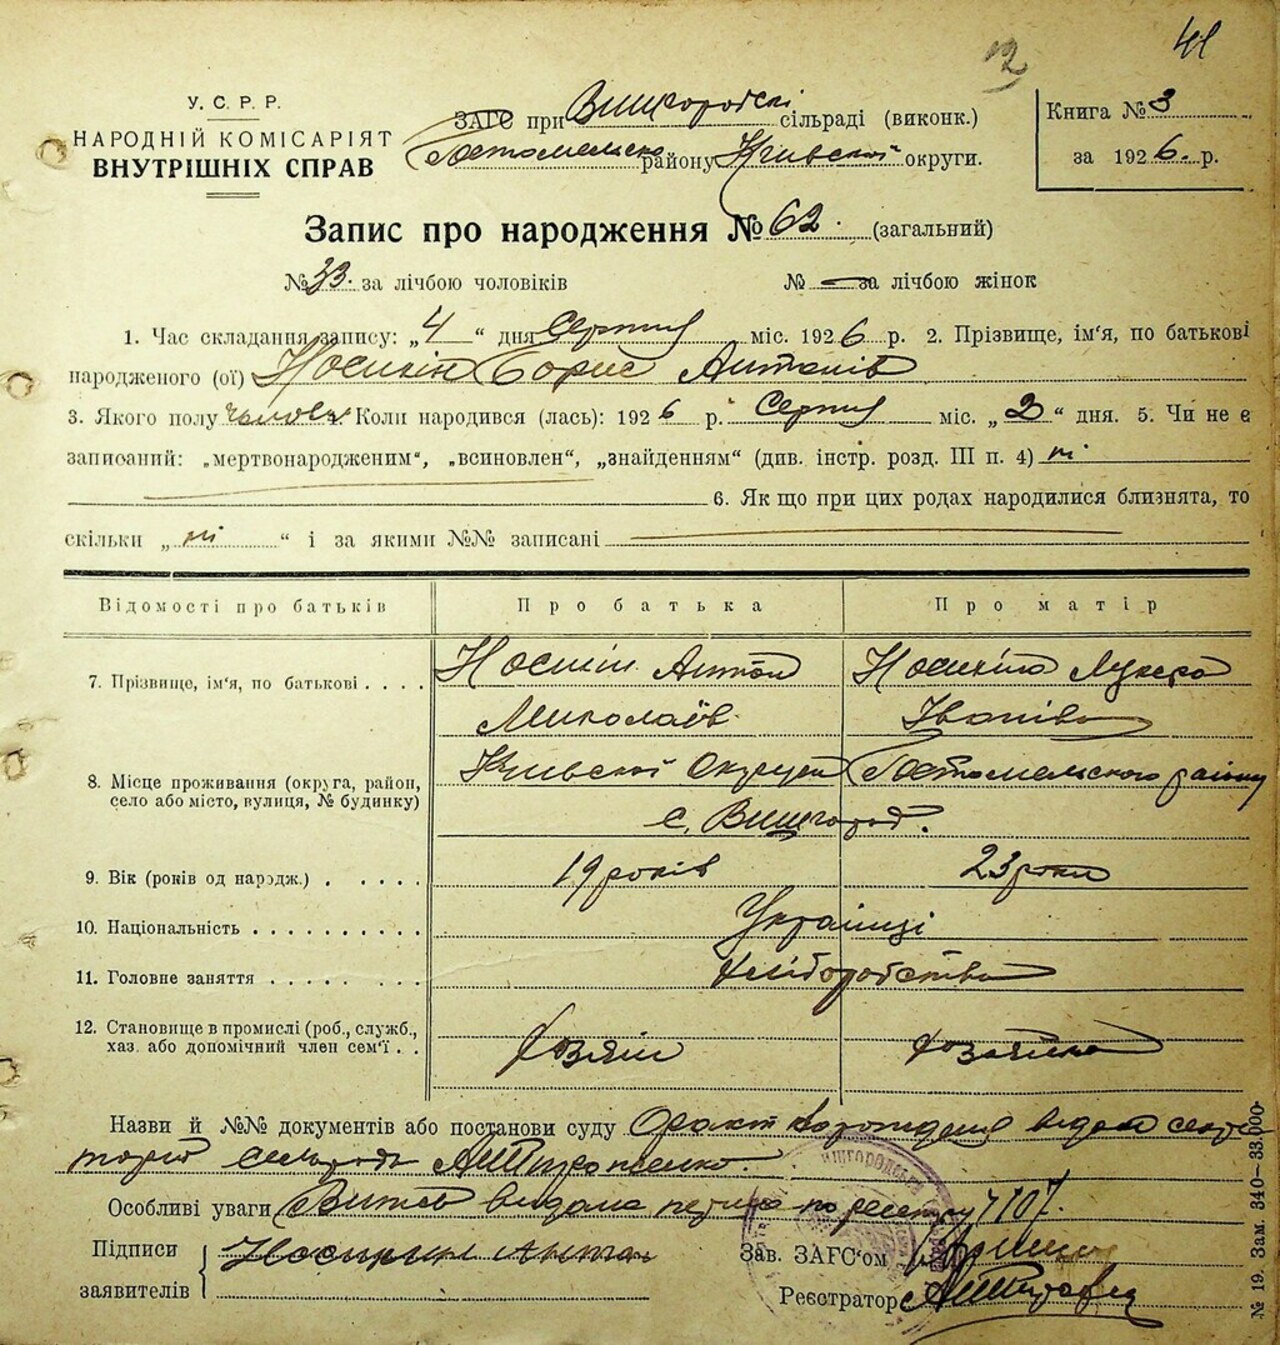 41
12
У. С. Р. Р.
НАРОДНІЙ КОМІСАРІЯТ
ВНУТРІШНІХ СПРАВ
ЗАГС при Вишгородскі сільраді (виконк.)
Гостомельско району Київської округи.
Книга № 3
за 1926. р.
Запис про народження № 62. (загальний)
№ 33. за лічбою чоловіків № — за лічбою жінок
1. Час складання запису: „4“ дня Серпня міс. 1926 р. 2. Прізвище, ім'я, по батькові
народженого (ої) Носикін Борис Антонів
3. Якого полу чолов. 4. Коли народився (лась): 1926 р. Серпня міс. „2“ дня. 5. Чи не є
записаний: „мертвонародженим“, „всиновлен“, „знайденням“ (див. інстр. розд. III п. 4) ні
6. Як що при цих родах народилися близнята, то
скільки „ні“ і за якими №№ записані
Відомості про батьків Про батька Про матір
7. Прізвище, ім'я, по батькові . . . . Антон
Миколаїв Іванівна
8. Місце проживання (округа, район,
село або місто, вулиця, № будинку)
Київської Округи Гостомельского району
с. Вишгород.
9. Вік (років од народж.) . . . . . 19 років 23 роки
10. Національність . . . . . . . . . . Українці
11. Головне заняття . . . . . . . . Хліборобство
12. Становище в промислі (роб., служб.,
хаз. або допомічний член сем'ї . .
Хозяїн Хозяйка
Назви й №№ документів або постанови суду Факт нарождения видом секре
тарю сельради
Особливі уваги Витяг видана по реестру 7107.
Підписи
заявителів
Антон
Зав. ЗАГС'ом
Реєстратор
№ 19. Зам. 340—33.000